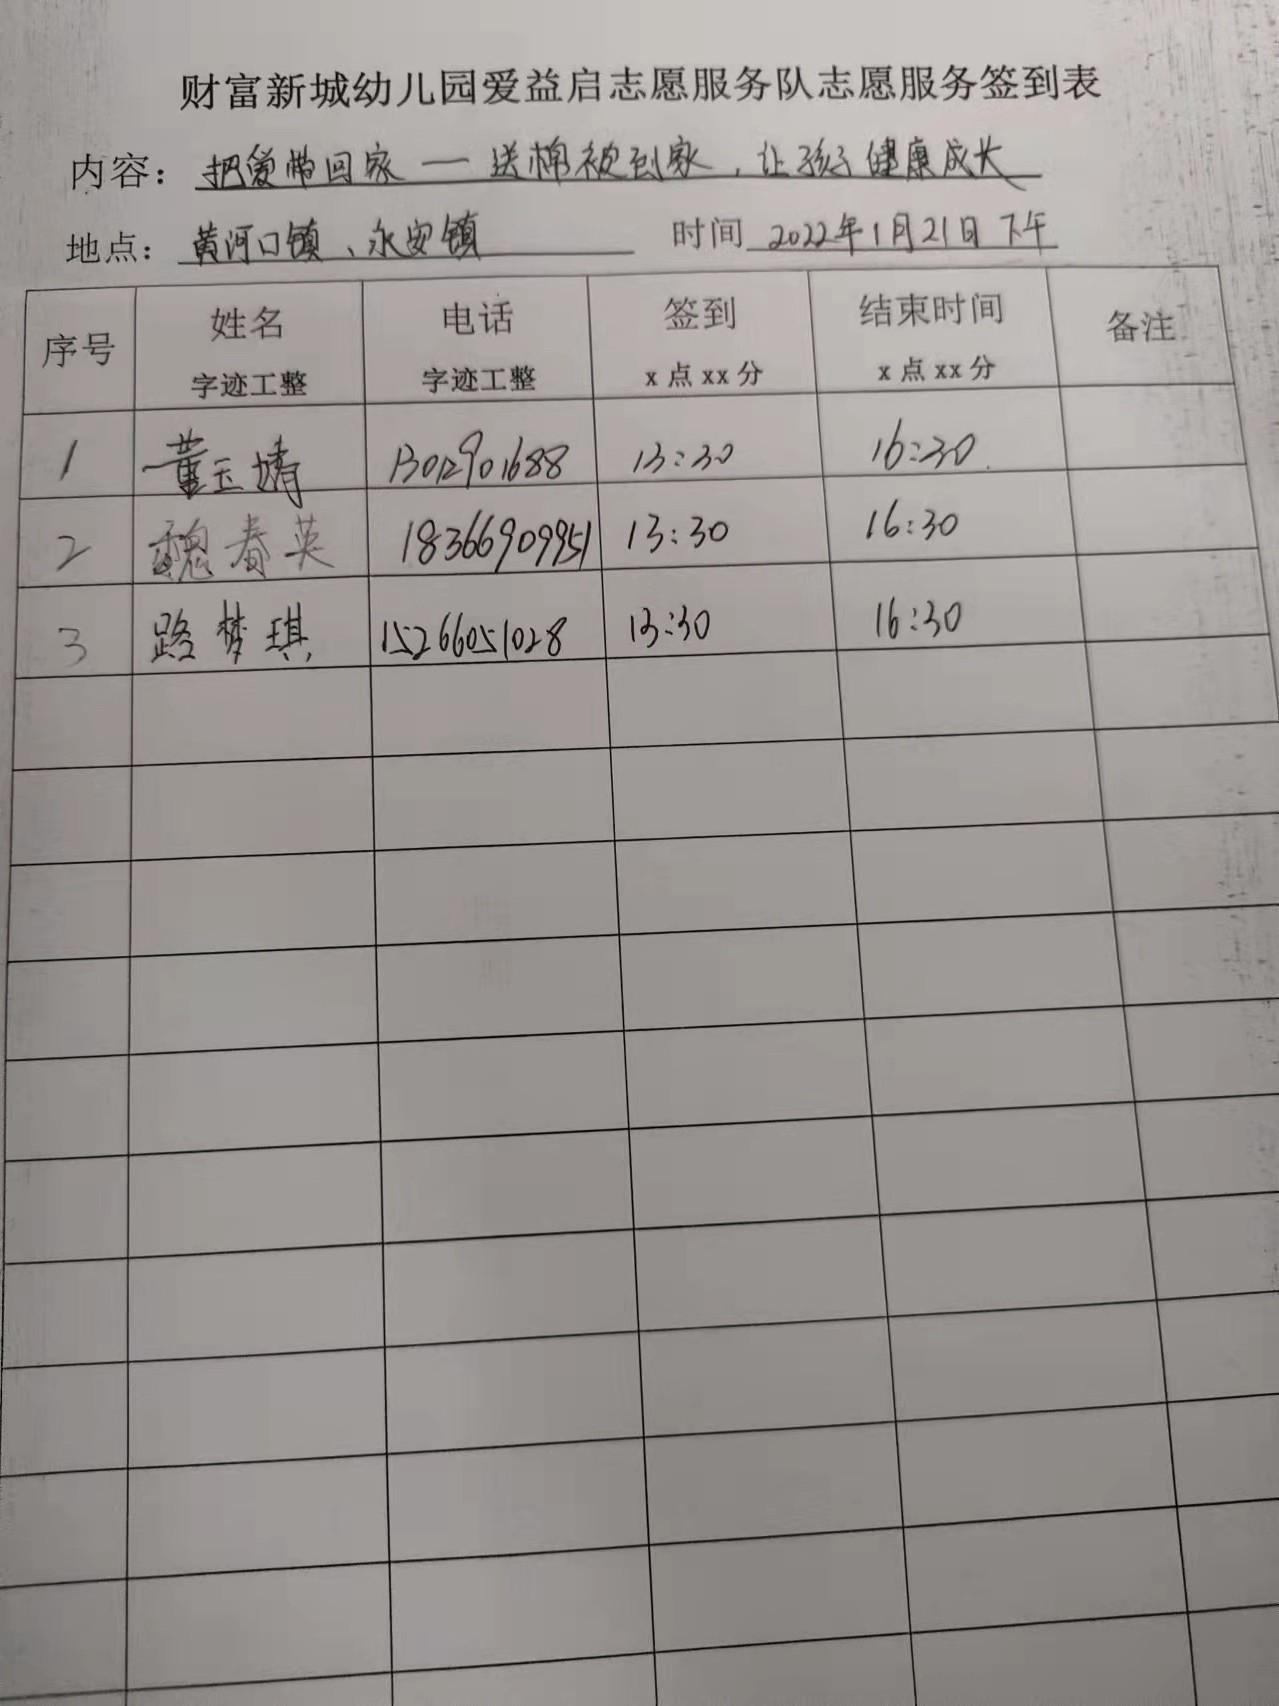 财富新城幼儿园爱益启志愿服务队志愿服务签到表
内容：把爱带回家一送棉被到家，让孩子健康成长
地点：黄河口镇、永安镇 时间 2022年1月21日下午
序号 姓名 电话 签到 结束时间 备注
字迹工整 字迹工整 x 点 xx 分 x 点 xx 分
1 董玉婧 13012901688 13:30 16:30
2 魏春英 18366909951 13:30 16:30
3 路梦琪 15266051028 13:30 16:30